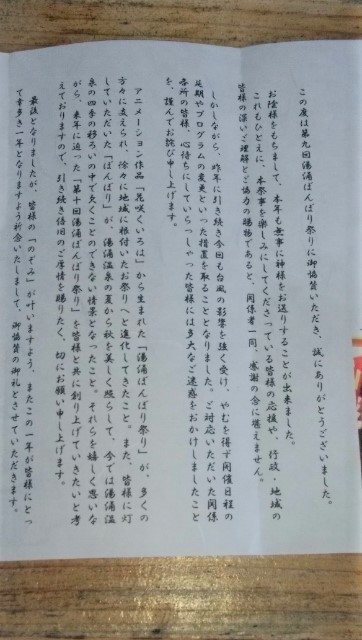 この度は第九回湯涌ぼんぼり祭りに御協賛いただき、誠にありがとうございました。
お陰様をもちまして、本年も無事に神様をお送りすることが出来ました。
これもひとえに、本祭事を楽しみにしてくださっている皆様の応援や、行政・地域の
皆様の深いご理解とご協力の賜物であると、関係者一同、感謝の念に堪えません。
しかしながら、昨年に引き続き今回も台風の影響を強く受け、やむを得ず開催日程の
延期やプログラムの変更といった措置を取ることとなりました。ご対応いただいた関係
各所の皆様、心待ちにしていらっしゃった皆様には多大なご迷惑をおかけしましたこと
を、謹んでお詫び申し上げます。
アニメーション作品「花咲くいろは」から生まれた「湯涌ぼんぼり祭り」が、多くの
方々に支えられ、徐々に地域に根付いたお祭りへと進化してきたこと。また、皆様に灯
していただいた「ぼんぼり」が、湯涌温泉の夏から秋を美しく照らして、今では湯涌温
泉の四季の移ろいの中で欠くことのできない情景となったこと。それらを嬉しく思いな
がら、来年に迫った「第十回湯涌ぼんぼり祭り」を皆様と共に創り上げていきたいと考
えておりますので、引き続き倍旧のご厚情を賜りたく、切にお願い申し上げます。
最後となりましたが、皆様の「のぞみ」が叶いますよう、またこの一年が皆様にとっ
て幸多き一年となりますよう祈念いたしまして、御協賛の御礼とさせていただきます。